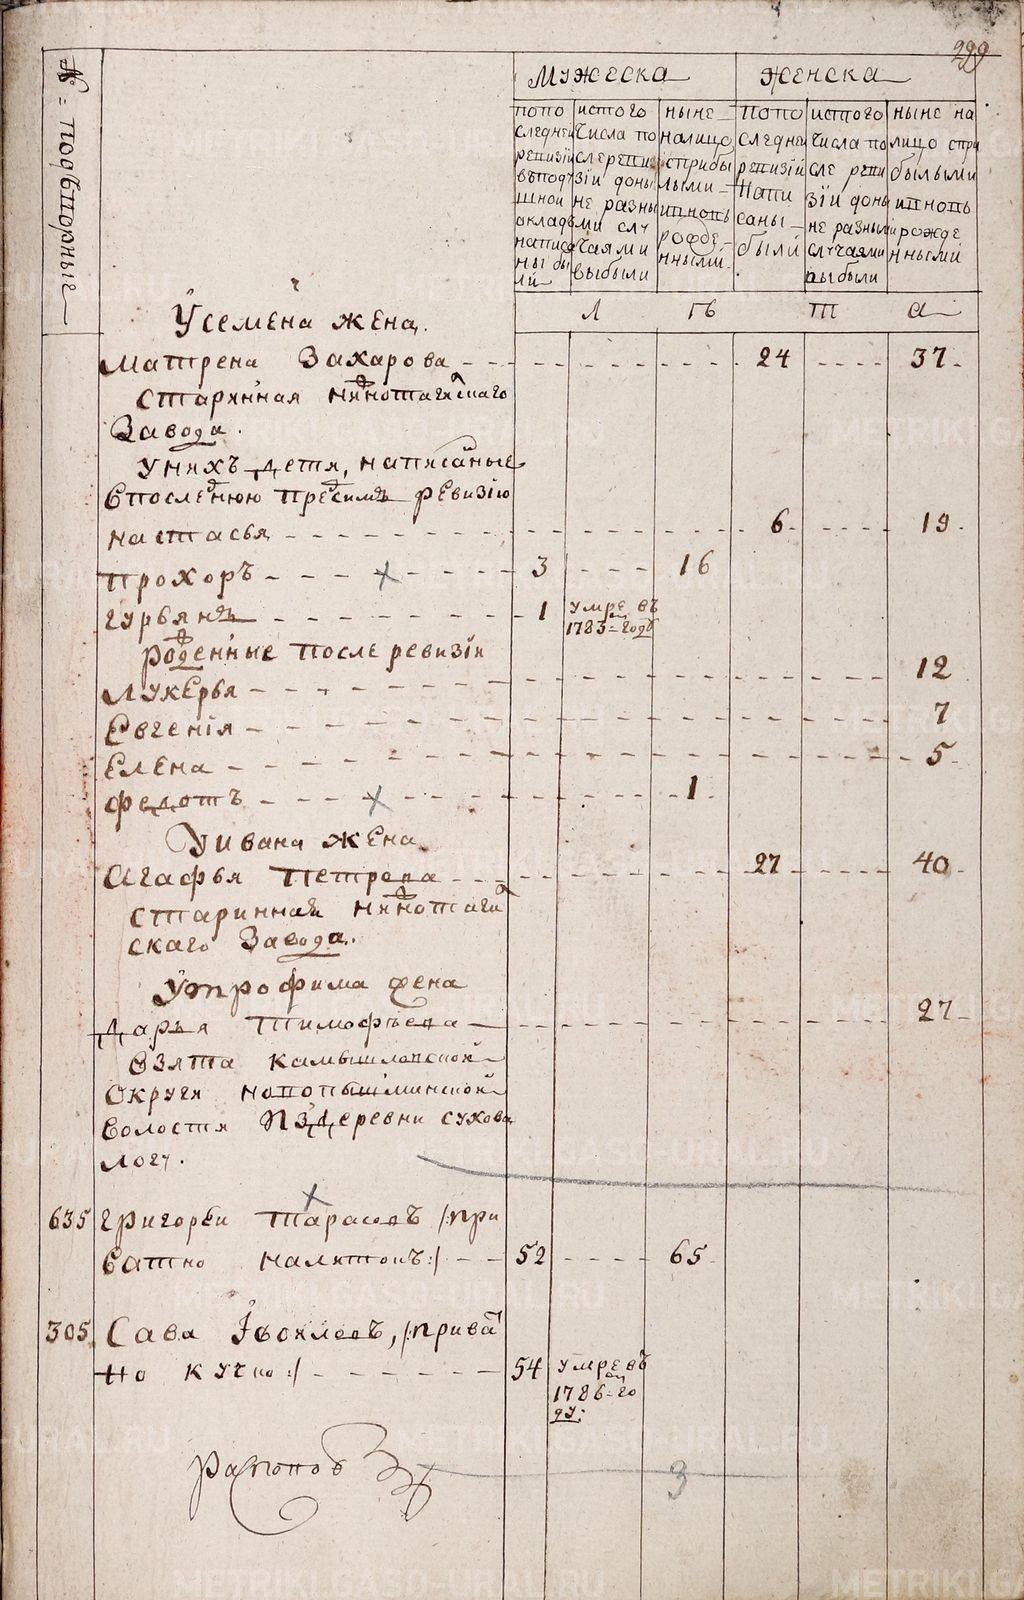 299
№ подворный
Мужеска
Женска
попо следней ревизии в подушной оклад написаны были
ис того числа после ревизии до ныне разными случаями выбыли
ныне налицо с прибылыми и вновь рожденными
по последней ревизии написаны были
ис того числа после ревизии до ныне разными случаями выбыли
ныне налицо с прибылыми и вновь рожденными
Л гъ т а
У семена жена
Матрена Захарова 24 37
старинная нижнотагилскаго
Завода.
У них дети, написаные
в последнюю пред сим ревизию
настасья 6 19
Прохоръ 3 16
гурьян 1 умре въ
1783 году
рожденные после ревизiи
Лукерья 12
Евгенiя 7
Елена 5
Федотъ 1
У ивана жена
Агафья Петрова 27 40
старинная нижнотаги
скаго Завода.
У трофима жена
Дарья Тимофеева 27
взята камышловской
Округи новопышминской
Волости из деревни сухова
логу.
635 Григорей Тарасовъ /:при
ватно налитовъ:/ 52 65
305 Сава Iвовлевъ, /:прива
тно кучко:/ 54 умре въ
1786 го
ду:
3
METRIKI.GASO-URAL.RU